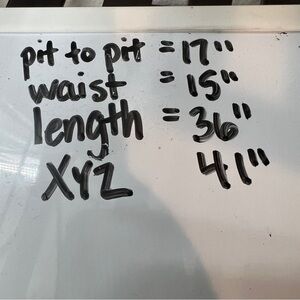 pit to pit = 17"
waist = 15"
length = 36"
XYZ 41"